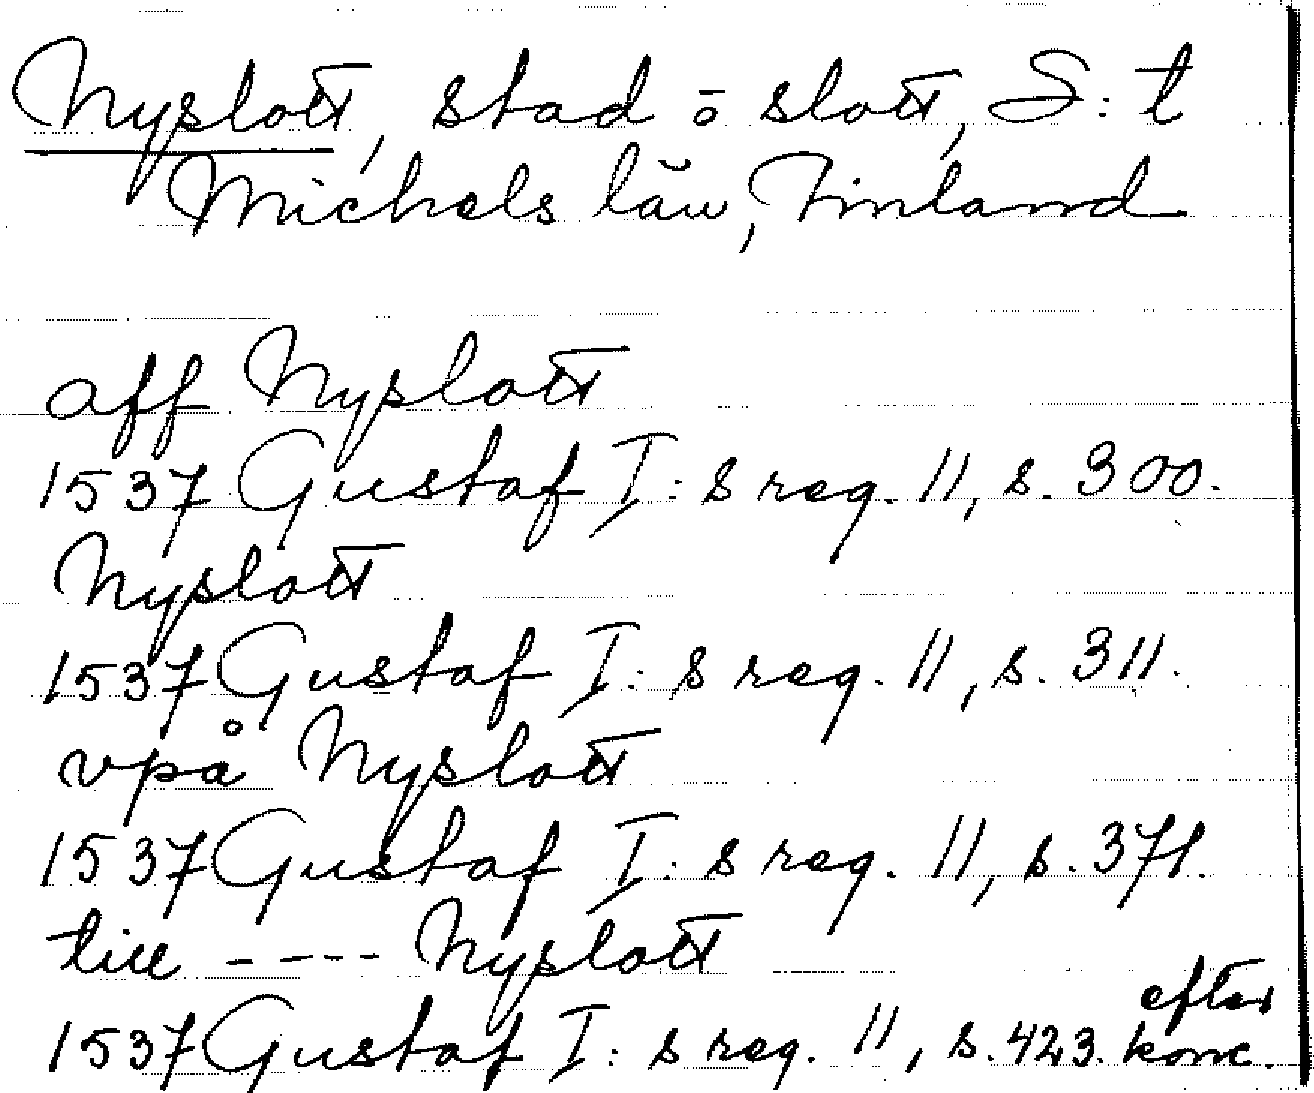 Nyslott, stad o slott, S:t
Michels län, Finland
aff Nyslott
1537 Gustaf I:s reg. 11, s. 300.
Nyslott
1537 Gustaf I:s reg. 11, s. 311.
vpå Nyslott
1537 Gustaf I:s reg. 11, s. 371.
till ---- Nyslott
efter
1537 Gustaf I:s reg. 11, s. 423. konc.